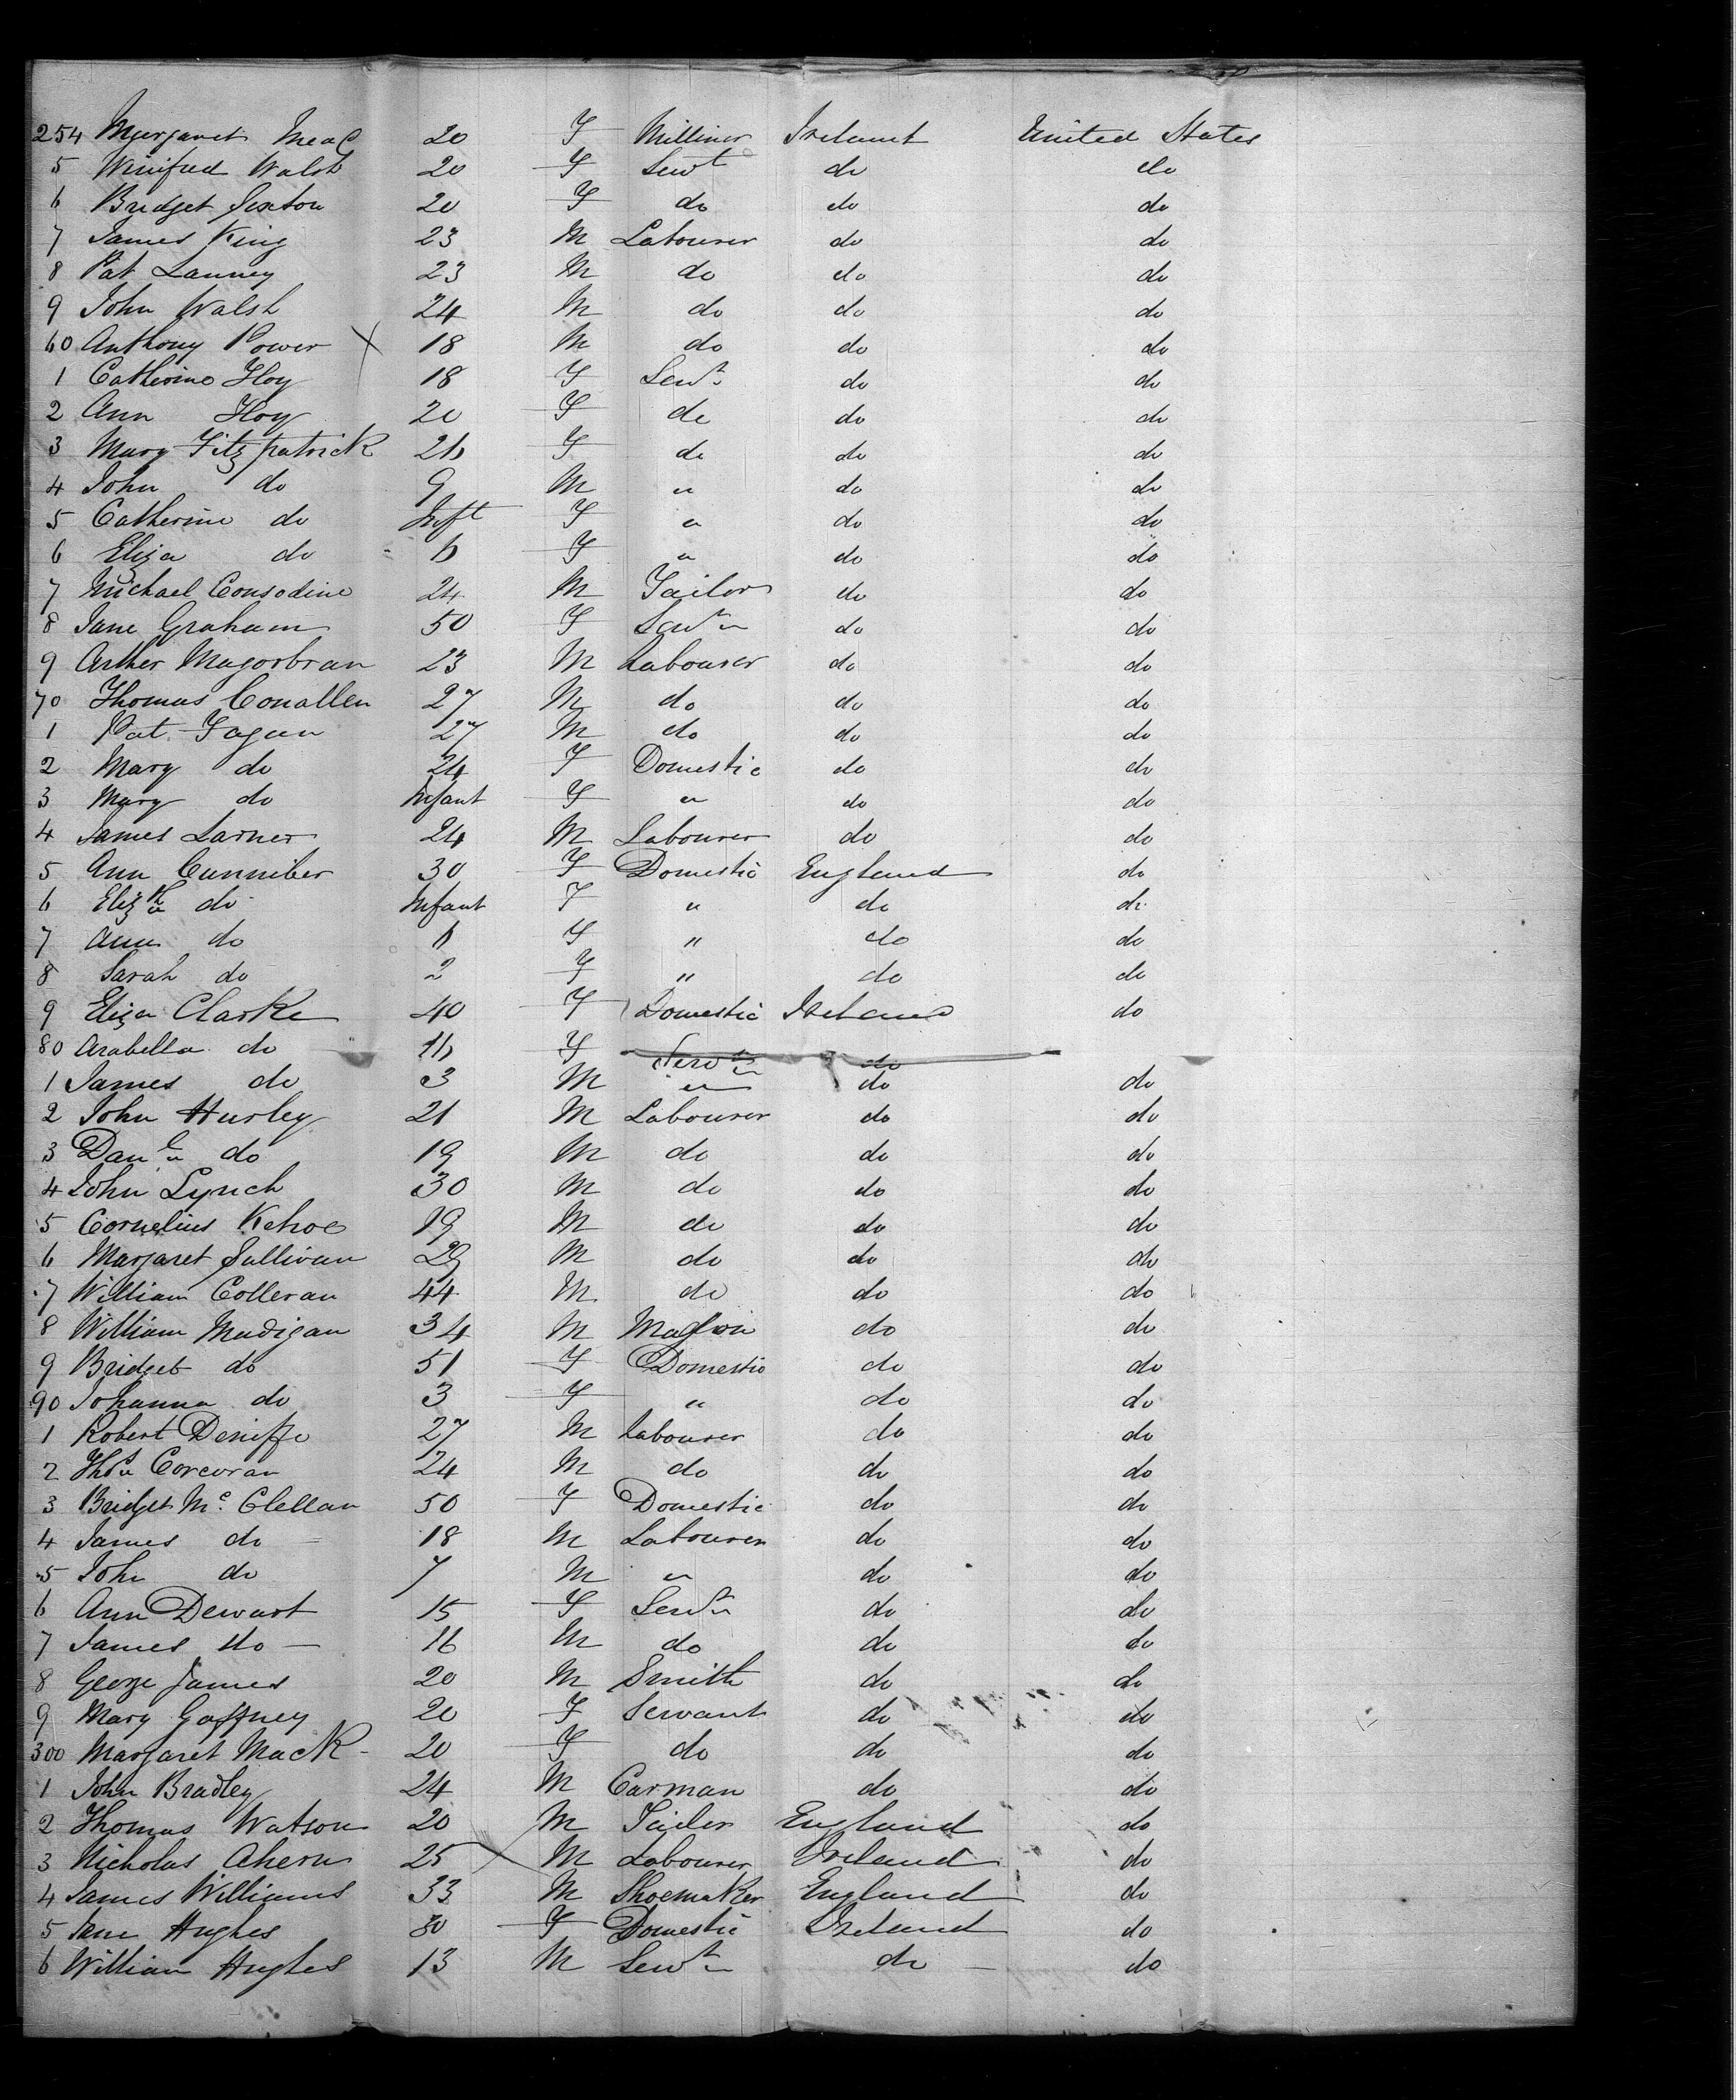 254 Margaret Meal 20 F Milliner Ireland United States
5 Winifred Walsh 20 F Servt do do
6 Bridget Sexton 20 F do do do
7 James King 23 M Labourer do do
8 Pat Lanney 23 M do do do
9 John Walsh 24 M do do do
60 Anthony Power X 18 M do do do
1 Catherine Hoy 18 F Servt do do
2 Ann Hoy 20 F do do do
3 Mary Fitzpatrick 26 F do do do
4 John do 9 M " do do
5 Catherine do Inft F " do do
6 Eliza do 6 F " do do
7 Michael Consodine 24 M Tailor do do
8 Jane Graham 50 F Servt do do
9 Arther Magorbran 23 M Labourer do do
70 Thomas Conallen 27 M do do do
1 Pat Fagan 27 M do do do
2 Mary do 24 F Domestic do do
3 Mary do Infant F " do do
4 James Larner 24 M Labourer do do
5 Ann Cunniber 30 F Domestic England do
6 Elizh do Infant F " do do
7 Ann do 6 F " do do
8 Sarah do 2 F " do do
9 Eliza Clarke 40 F Domestic Ireland do
80 Arabella do 16 F Servt do
1 James do 3 M " do do
2 John Hurley 21 M Labourer do do
3 Danl do 19 M do do do
4 John Lynch 30 M do do do
5 Cornelius Kehoe 19 M do do do
6 Margaret Sullivan 29 M do do do
7 William Colleran 44 M do do do
8 William Madigan 34 M Mason do do
9 Bridget do 51 F Domestic do do
90 Johanna do 3 F " do do
1 Robert Deniffe 27 M Labourer do do
2 Thos Corcoran 24 M do do do
3 Bridget Mc Clellan 50 F Domestic do do
4 James do 18 M Labourer do do
5 John do 7 M " do do
6 Ann Dewart 15 F Servt do do
7 James do 16 M do do do
8 George James 20 M Smith do do
9 Mary Gaffney 20 F Servant do do
300 Margaret Mack 20 F do do do
1 John Bradley 24 M Carman do do
2 Thomas Watson 20 M Tailer England do
3 Nicholas Ahern 25 X M Labourer Ireland do
4 James Williams 33 M Shoemaker England do
5 Jane Hughes 30 F Domestic Ireland do
6 William Hughes 13 M Servt do do